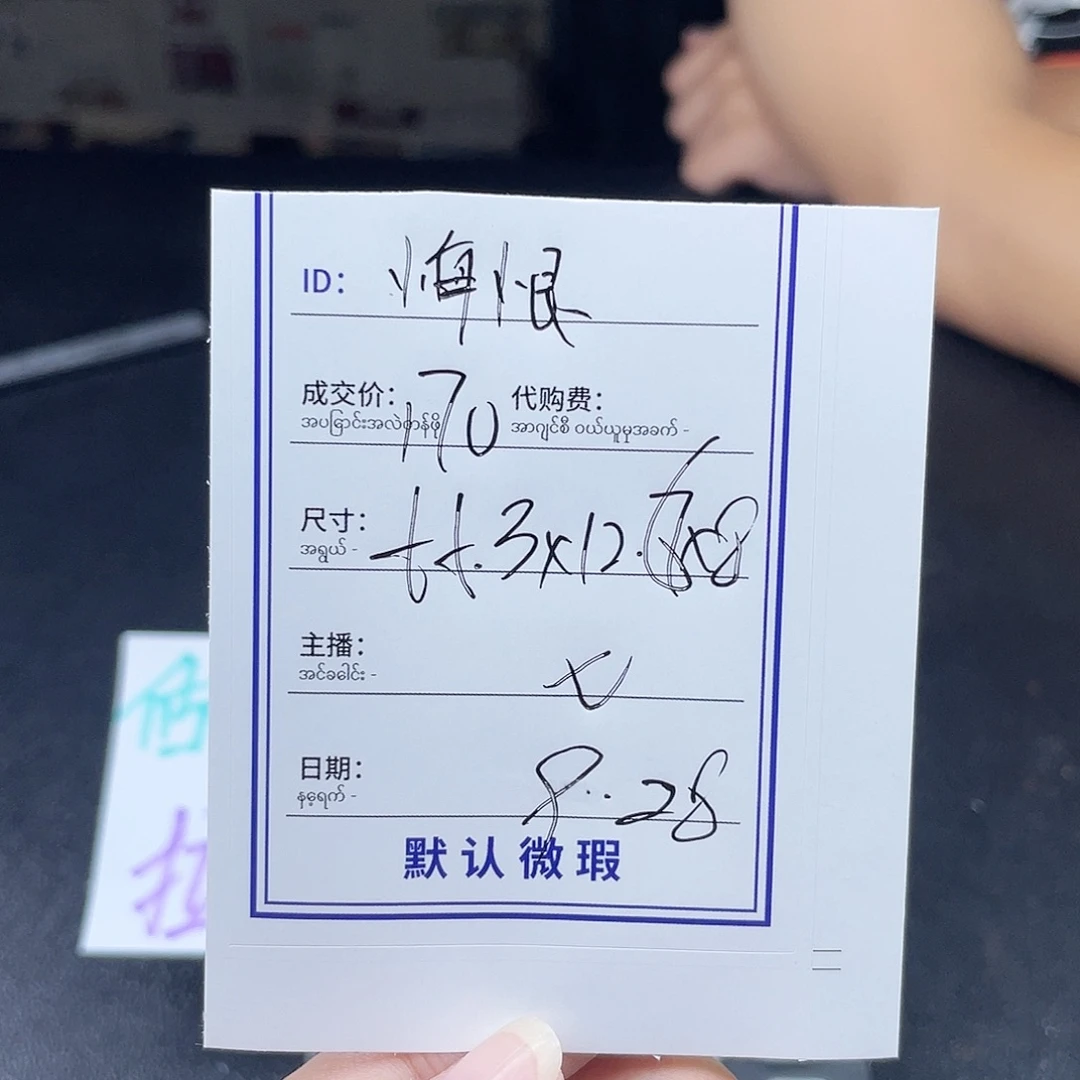 ID: 悔恨
成交价: 170 代购费:
အပြောင်းအလဲတန်ဖိုး အာဂျင်စီ ဝယ်ယူမှုအခက် -
尺寸:
အရွယ် -
主播:
အင်ခေါင်း -
日期: 8..28
နေ့ရက် -
默认微瑕